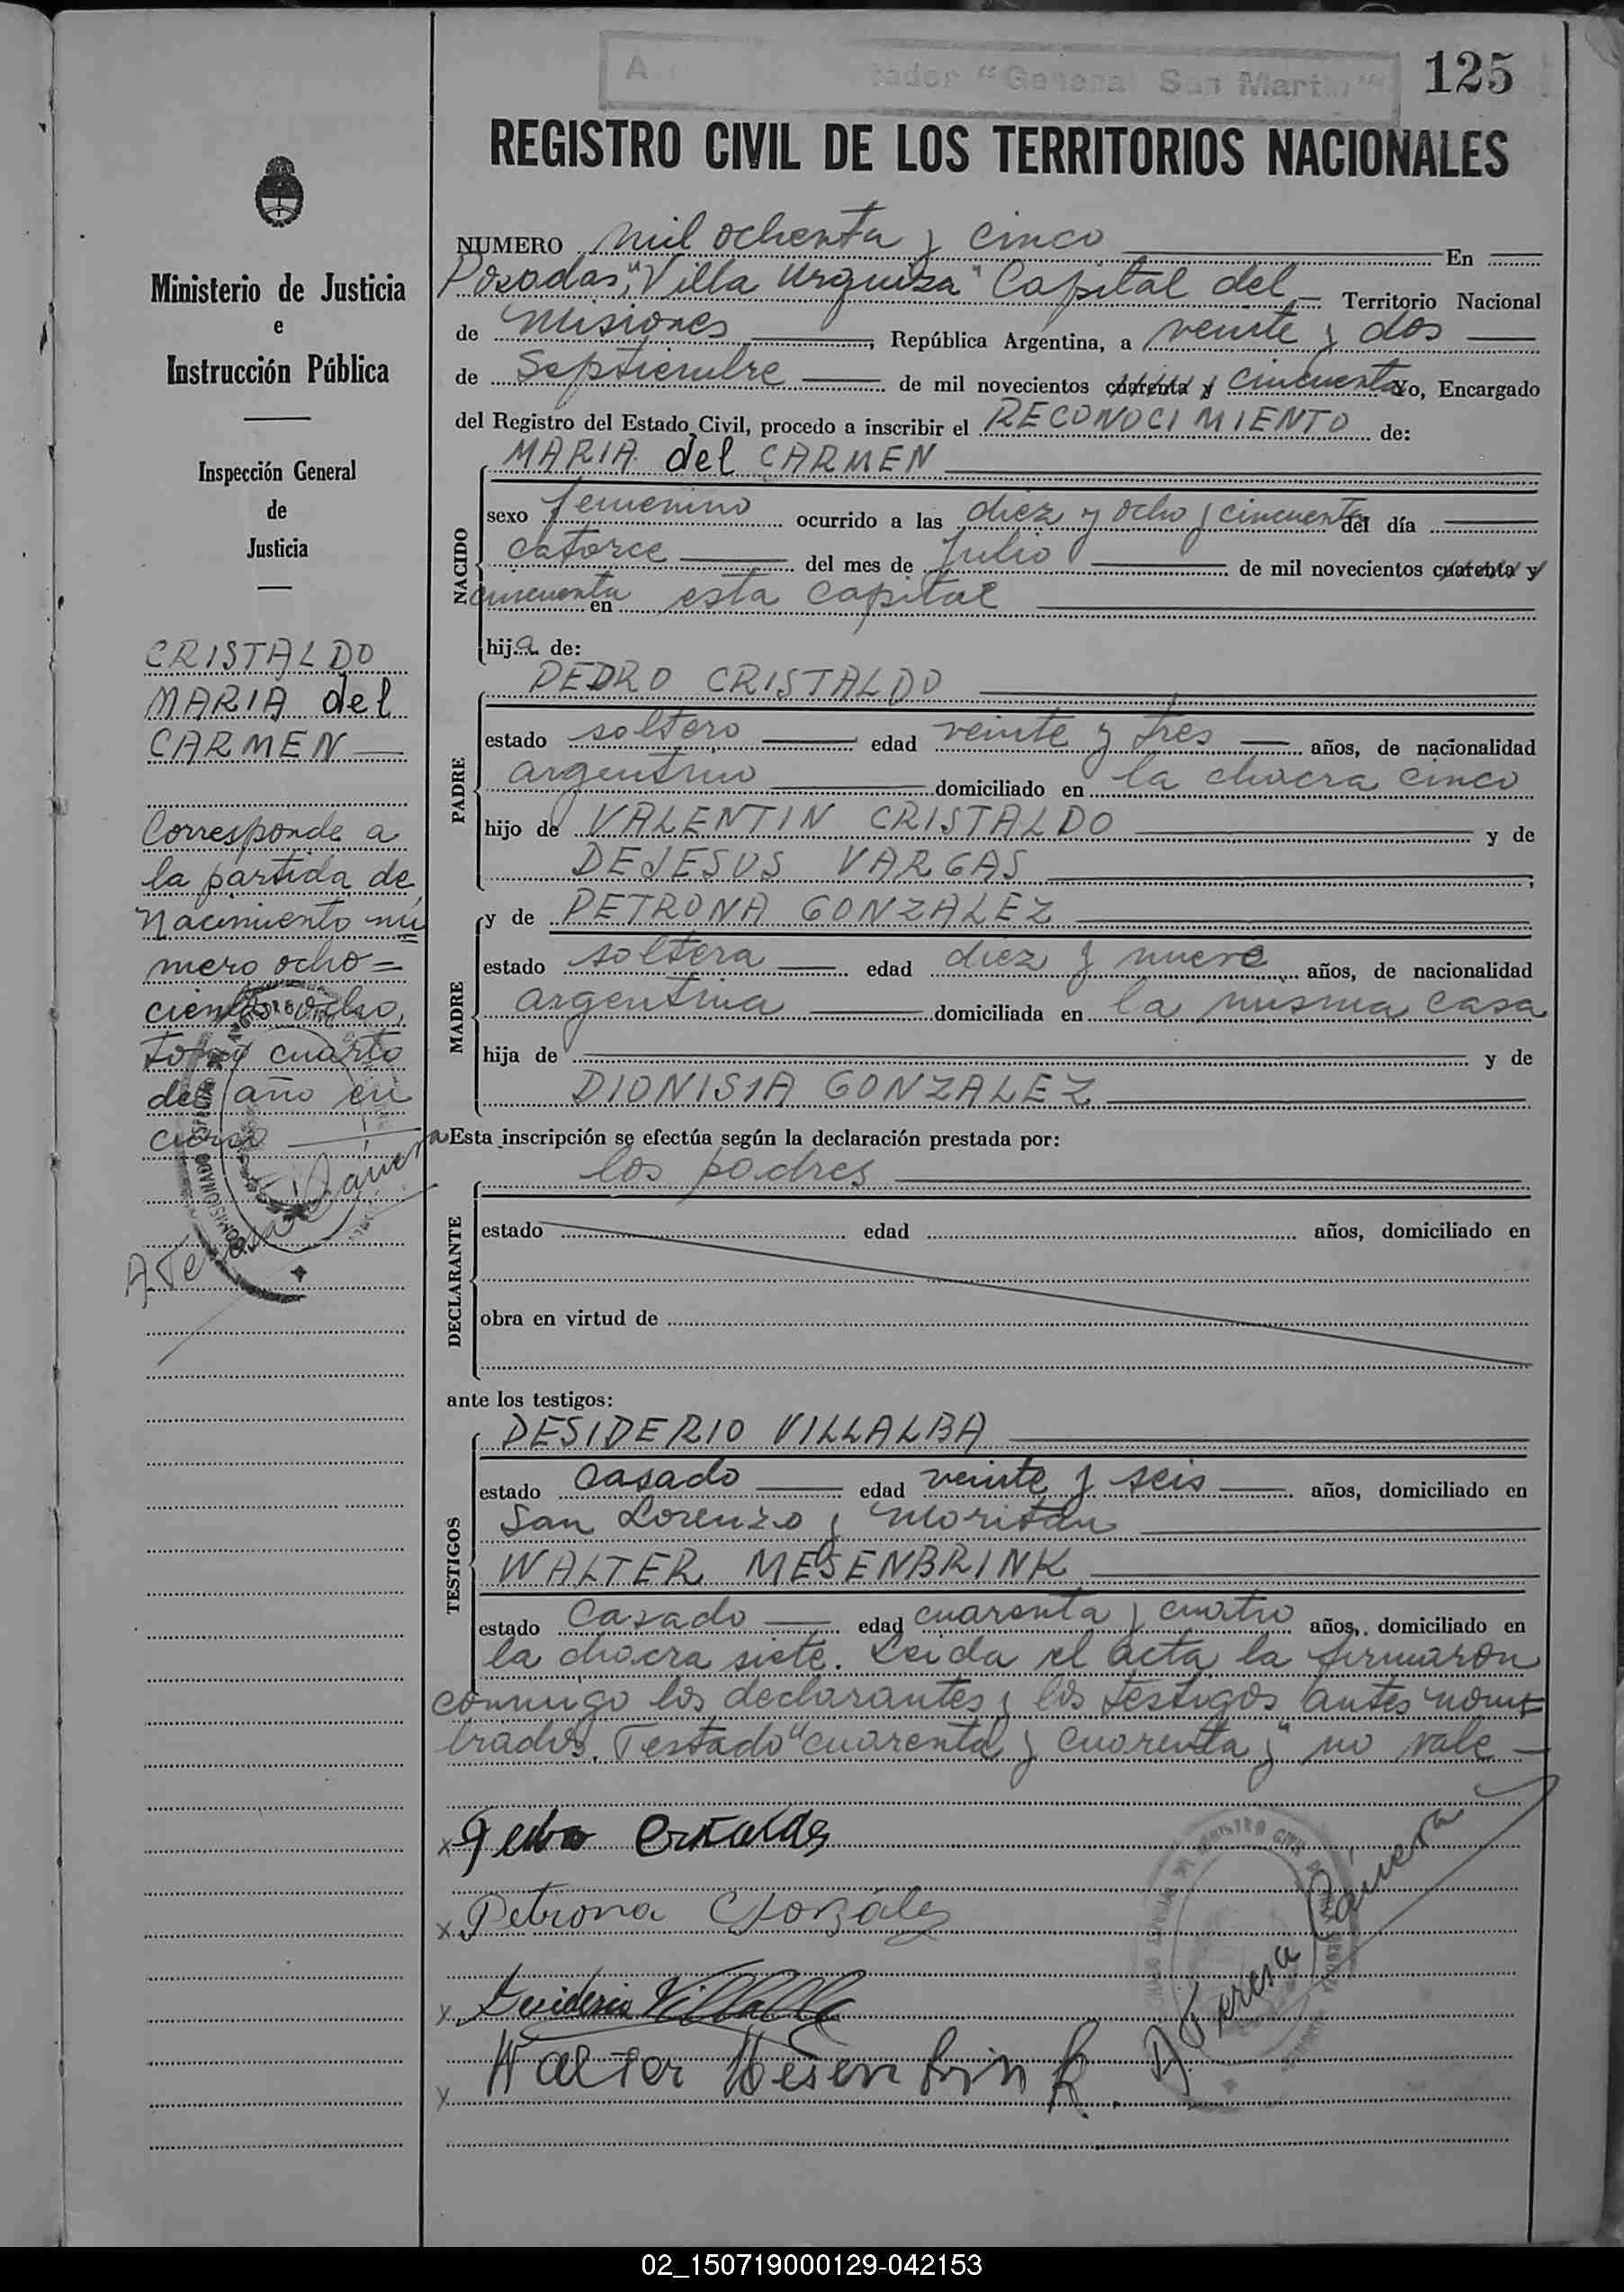 125
"General San Martin"
REGISTRO CIVIL DE LOS TERRITORIOS NACIONALES
Ministerio de Justicia
e
Instrucción Pública
Inspección General
de
Justicia
CRISTALDO
MARIA del
CARMEN
Corresponde a
la partida de
Nacimiento nú
mero ocho=
cientos ocho,
tomo cuarto
del año en
curso
A. Teresa
NUMERO mil ochenta y cinco En
Posadas, "Villa Urquiza" Capital del Territorio Nacional
de Misiones, República Argentina, a veinte y dos
de Septiembre de mil novecientos cuarenta y cincuenta Yo, Encargado
del Registro del Estado Civil, procedo a inscribir el RECONOCIMIENTO de:
MARIA del CARMEN
NACIDO
sexo femenino ocurrido a las diez y ocho y cincuenta del día
catorce del mes de Julio de mil novecientos cuarenta y
cincuenta en esta capital
hija de:
PEDRO CRISTALDO
PADRE
estado soltero edad veinte y tres años, de nacionalidad
argentino domiciliado en la chacra cinco
hijo de VALENTIN CRISTALDO y de
DEJESUS VARGAS,
MADRE
y de PETRONA GONZALEZ
estado soltera edad diez y nueve años, de nacionalidad
argentina domiciliada en la misma casa
hija de y de
DIONISIA GONZALEZ
Esta inscripción se efectúa según la declaración prestada por:
los padres
DECLARANTE
estado edad años, domiciliado en
obra en virtud de
ante los testigos:
TESTIGOS
DESIDERIO VILLALBA
estado casado edad veinte y seis años, domiciliado en
San Lorenzo y Moritán
WALTER MESENBRINK
estado casado edad cuarenta y cuatro años, domiciliado en
la chacra siete. Leida el acta la firmaron
conmigo los declarantes y los testigos antes nom
brados. Testado "cuarenta y cuarenta y" no vale
x Pedro Cristaldo
x Petrona Gonzáles
x Desiderio Villalba
x Walter Mesenbrink.
A. Teresa
02_150719000129-042153